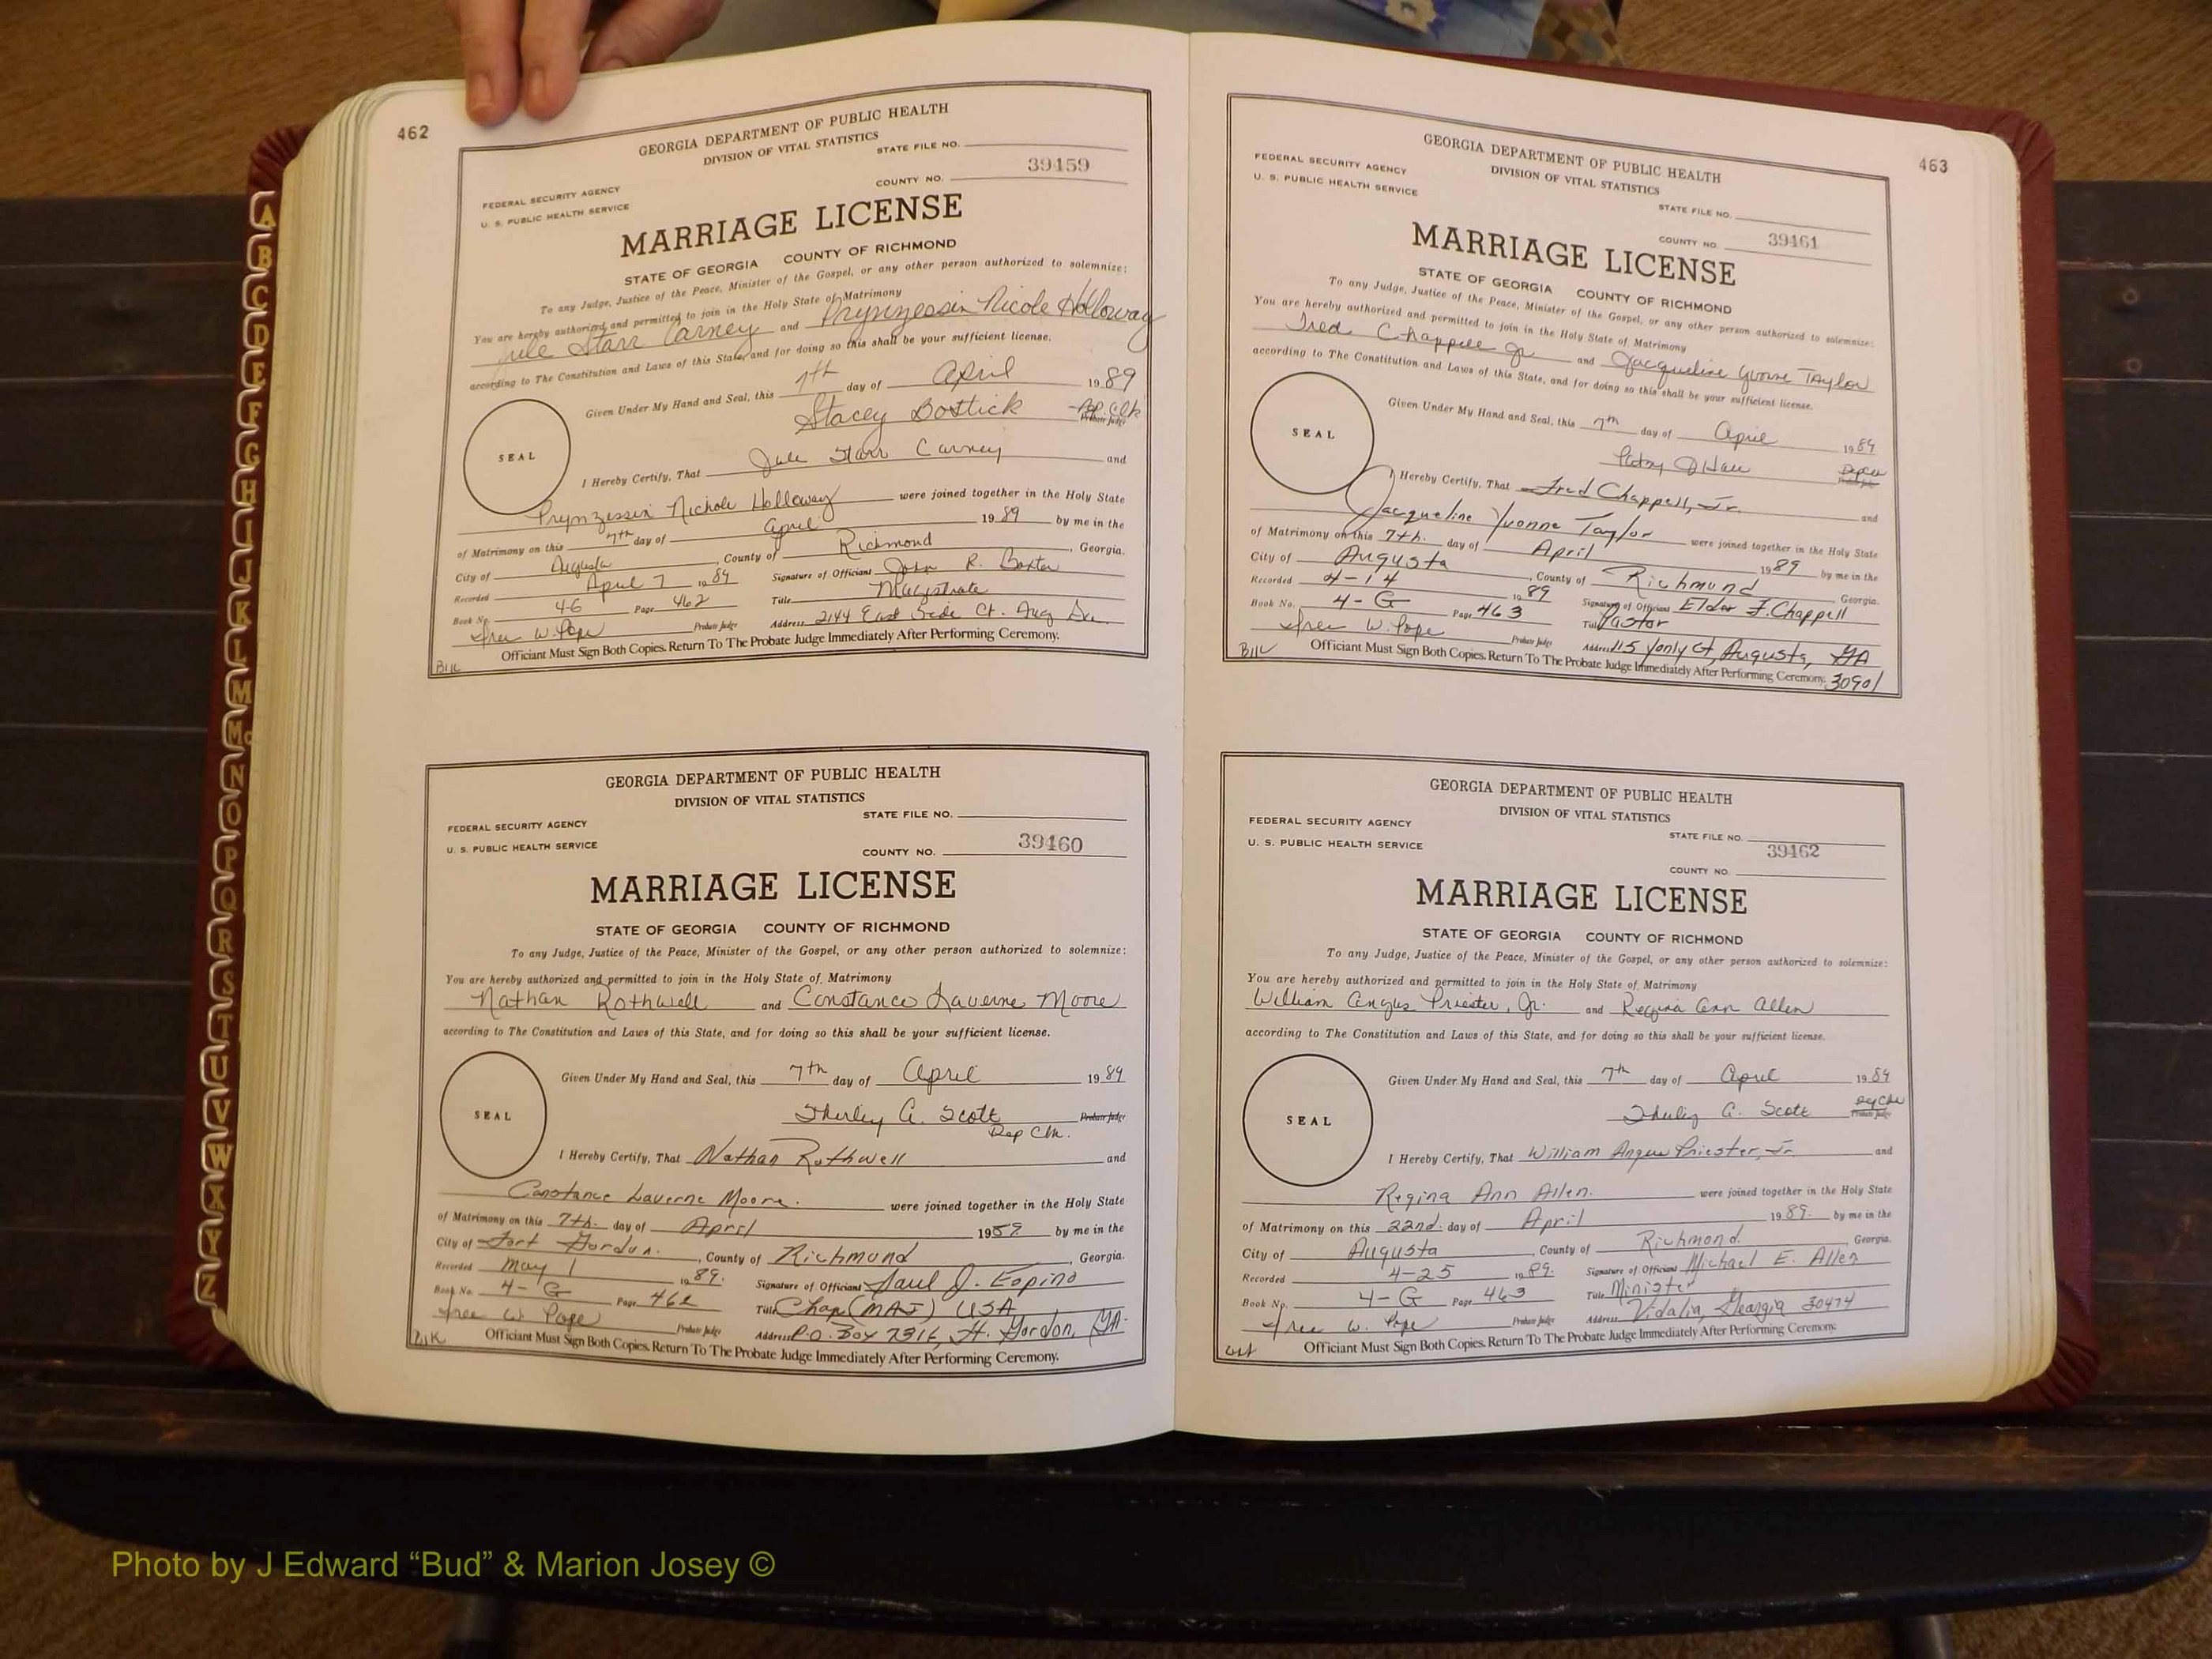 462
GEORGIA DEPARTMENT OF PUBLIC HEALTH
DIVISION OF VITAL STATISTICS
STATE FILE NO.
39459
COUNTY NO.
FEDERAL SECURITY AGENCY
U. S. PUBLIC HEALTH SERVICE
MARRIAGE LICENSE
STATE OF GEORGIA COUNTY OF RICHMOND
To any Judge, Justice of the Peace, Minister of the Gospel, or any other person authorized to solemnize:
You are hereby authorized and permitted to join in the Holy State of Matrimony
Starr Carney and Prynzessin Nicole Holloway
according to The Constitution and Laws of this State, and for doing so this shall be your sufficient license.
Given Under My Hand and Seal, this 7th day of April 1989
Stacey Bostick Dep. Clk Probate Judge
SEAL
I Hereby Certify, That Starr Carney and
Prynzessin Nichole Holloway were joined together in the Holy State
of Matrimony on this 7th day of April 1989 by me in the
City of Augusta, County of Richmond, Georgia.
Recorded April 7 1989 Signature of Officiant John R. Baxter
Book No. 4G Page 462 Title Magistrate
W. Pope Probate Judge Address 2144 East Side Ct. Aug
Officiant Must Sign Both Copies. Return To The Probate Judge Immediately After Performing Ceremony.
GEORGIA DEPARTMENT OF PUBLIC HEALTH
DIVISION OF VITAL STATISTICS
STATE FILE NO.
FEDERAL SECURITY AGENCY
U. S. PUBLIC HEALTH SERVICE
39460
COUNTY NO.
MARRIAGE LICENSE
STATE OF GEORGIA COUNTY OF RICHMOND
To any Judge, Justice of the Peace, Minister of the Gospel, or any other person authorized to solemnize:
You are hereby authorized and permitted to join in the Holy State of Matrimony
Nathan Rothwell and Constance Laverne Moore
according to The Constitution and Laws of this State, and for doing so this shall be your sufficient license.
Given Under My Hand and Seal, this 7th day of April 1989
Shirley A. Scott Probate Judge
Dep Clk.
SEAL
I Hereby Certify, That Nathan Rothwell and
Constance Laverne Moore. were joined together in the Holy State
of Matrimony on this 7th. day of April 1989 by me in the
City of Fort Gordon., County of Richmond, Georgia.
Recorded May 1 1989. Signature of Officiant J. Espino
Book No. 4-G Page 462 Title Chap (MAJ) USA
W. Pope Probate Judge Address P.O. Box 7316, Ft. Gordon, GA.
Officiant Must Sign Both Copies. Return To The Probate Judge Immediately After Performing Ceremony.
463
GEORGIA DEPARTMENT OF PUBLIC HEALTH
DIVISION OF VITAL STATISTICS
FEDERAL SECURITY AGENCY
U. S. PUBLIC HEALTH SERVICE
STATE FILE NO.
COUNTY NO. 39461
MARRIAGE LICENSE
STATE OF GEORGIA COUNTY OF RICHMOND
To any Judge, Justice of the Peace, Minister of the Gospel, or any other person authorized to solemnize:
You are hereby authorized and permitted to join in the Holy State of Matrimony
Fred Chappell Jr and Jacqueline Yvonne Taylor
according to The Constitution and Laws of this State, and for doing so this shall be your sufficient license.
Given Under My Hand and Seal, this 7th day of April 1989
SEAL
I Hereby Certify, That Fred Chappell, Jr. and
Jacqueline Yvonne Taylor were joined together in the Holy State
of Matrimony on this 7th. day of April 1989 by me in the
City of Augusta, County of Richmond Georgia.
Recorded 4-14 1989 Signature of Officiant Elder F. Chappell
Book No. 4-G Page 463 Title Pastor
W. Pope Probate Judge Address 115 Ct, Augusta, GA
Officiant Must Sign Both Copies. Return To The Probate Judge Immediately After Performing Ceremony. 30901
GEORGIA DEPARTMENT OF PUBLIC HEALTH
DIVISION OF VITAL STATISTICS
FEDERAL SECURITY AGENCY
U. S. PUBLIC HEALTH SERVICE
STATE FILE NO.
39462
COUNTY NO.
MARRIAGE LICENSE
STATE OF GEORGIA COUNTY OF RICHMOND
To any Judge, Justice of the Peace, Minister of the Gospel, or any other person authorized to solemnize:
You are hereby authorized and permitted to join in the Holy State of Matrimony
William Angus Priester, Jr. and Regina Ann Allen
according to The Constitution and Laws of this State, and for doing so this shall be your sufficient license.
Given Under My Hand and Seal, this 7th day of April 1989
Shirley A. Scott Probate Judge
SEAL
I Hereby Certify, That William Angus Priester, Jr. and
Regina Ann Allen. were joined together in the Holy State
of Matrimony on this 22nd. day of April 1989. by me in the
City of Augusta, County of Richmond. Georgia.
Recorded 4-25 1989. Signature of Officiant Michael E. Allen
Book No. 4-G Page 463 Title Minister
W. Pope Probate Judge Address Vidalia, Georgia 30474
Officiant Must Sign Both Copies. Return To The Probate Judge Immediately After Performing Ceremony.
A
B
C
D
E
F
G
H
I
J
K
L
M
Mc
N
O
P
Q
R
S
T
U
V
W
X
Y
Z
Photo by J Edward “Bud” & Marion Josey ©